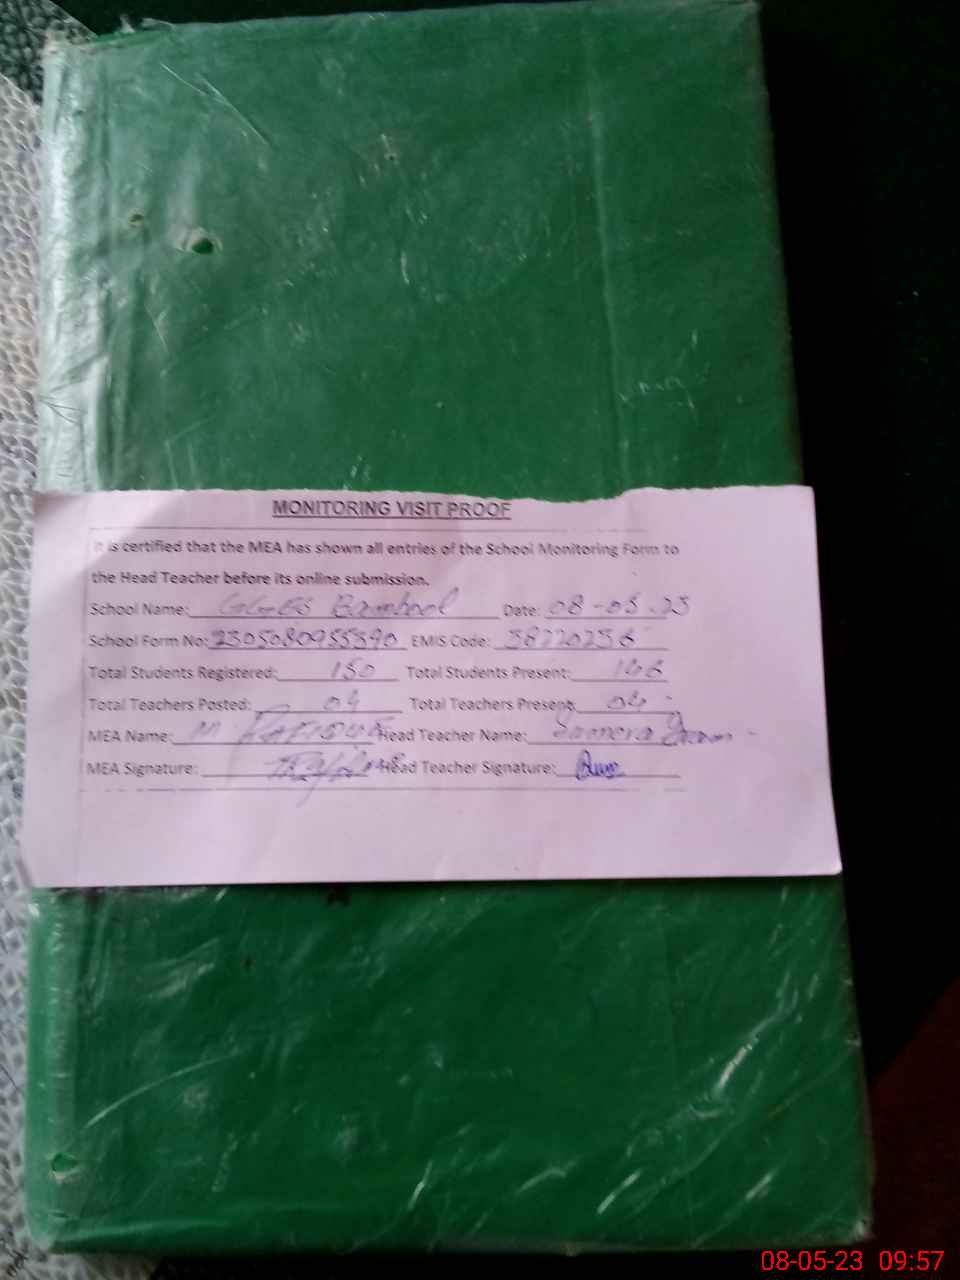 MONITORING VISIT PROOF
It is certified that the MEA has shown all entries of the School Monitoring Form to
the Head Teacher before its online submission.
School Name: GGES Date: 08-05-23
School Form No: EMIS Code:
Total Students Registered: 150 Total Students Present: 146
Total Teachers Posted: 04 Total Teachers Present: 04
MEA Name: M Head Teacher Name:
MEA Signature: Head Teacher Signature:
08-05-23 09:57